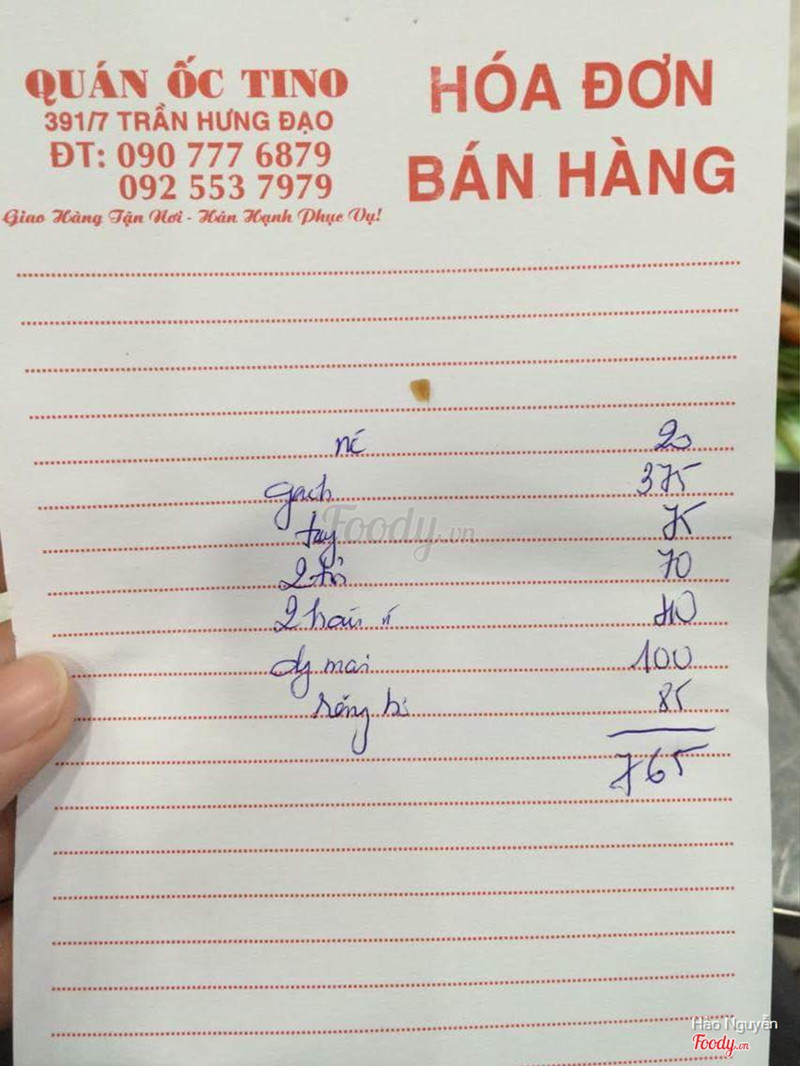 QUÁN ỐC TINO
391/7 TRẦN HƯNG ĐẠO
ĐT: 090 777 6879
092 553 7979
Giao Hàng Tận Nơi - Hân Hạnh Phục Vụ!
HÓA ĐƠN
BÁN HÀNG
20
gạch 375
tay 75
2 70
2 40
mai 100
85
765
Foody.vn
Hao Nguyễn
Foody.vn